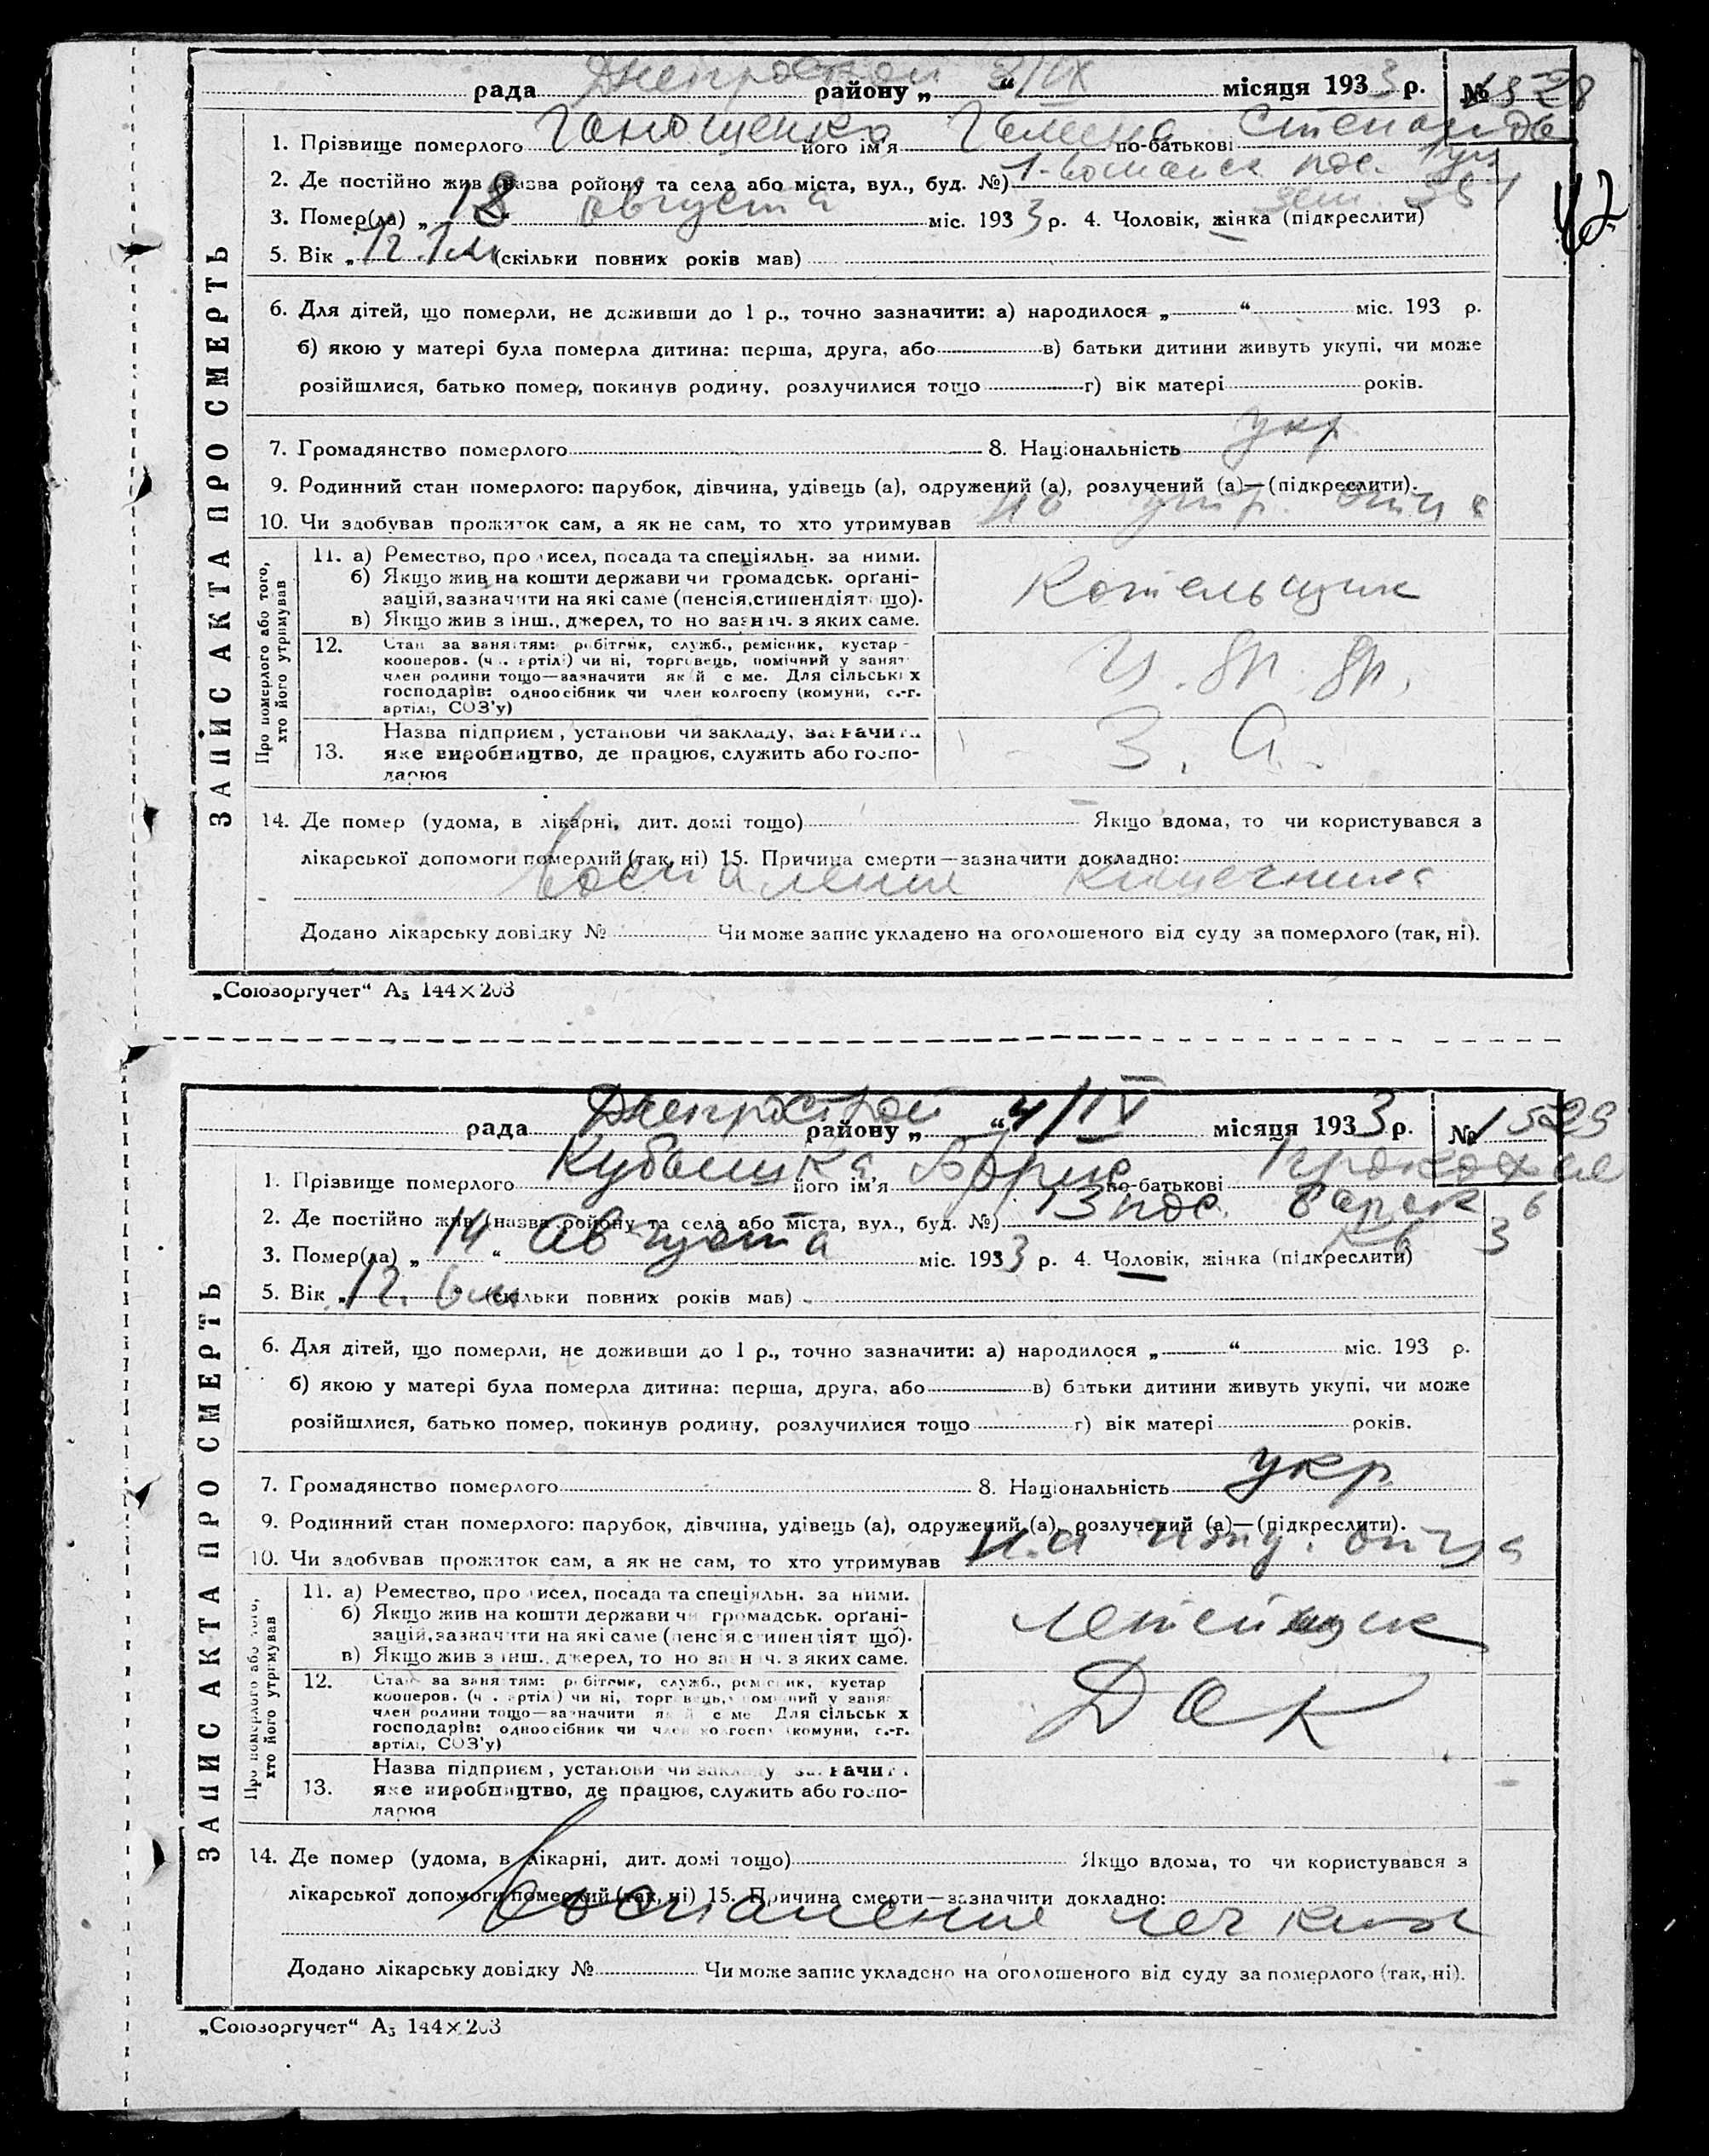 рада Днепрострой району „ 3/IX “ місяця 1933 р. № 1528
1. Прізвище померлого його ім'я по-батькові
2. Де постійно жив (назва ройону та села або міста, вул., буд. №) 1
42
3. Помер(ла) „ 18 августа міс. 1933 р. 4. Чоловік, жінка (підкреслити)
5. Вік „ 1г. 1м (скільки повних років мав)
6. Для дітей, що померли, не доживши до 1 р., точно зазначити: а) народилося „ “ міс. 193 р.
б) якою у матері була померла дитина: перша, друга, або в) батьки дитини живуть укупі, чи може
розійшлися, батько помер, покинув родину, розлучилися тощо г) вік матері років.
7. Громадянство померлого 8. Національність укр
9. Родинний стан померлого: парубок, дівчина, удівець (а), одружений (а), розлучений (а)—(підкреслити).
10. Чи здобував прожиток сам, а як не сам, то хто утримував на отца
ЗАПИС АКТА ПРО СМЕРТЬ
Про померлого або того,
хто його утримував
11. а) Ремество, промисел, посада та спеціяльн. за ними.
б) Якщо жив на кошти держави чи громадськ. орґані-
зацій, зазначити на які саме (пенсія, стипендія т що).
в) Якщо жив з інш., джерел, то но зазнач. з яких саме.
Котельщик
12. Стан за заняттям: робітник, служб., ремісник, кустар-
кооперов. (ч. артілі) чи ні, торговець, помічний у занят
член родини тощо—зазначити який саме. Для сільських
господарів: одноосібник чи член колгоспу (комуни, с.-г.
артілі, СОЗ'у)
13. Назва підприєм, установи чи закладу, зазначити
яке виробництво, де працює, служить або госпо-
дарює
З. А.
14. Де помер (удома, в лікарні, дит. домі тощо) Якщо вдома, то чи користувався з
лікарської допомоги померлий (так, ні) 15. Причина смерти—зазначити докладно:
Воспаление кишечника
Додано лікарську довідку № Чи може запис укладено на оголошеного від суду за померлого (так, ні).
„Союзоргучет“ А₅ 144×203
рада Днепрострой району „ “ 4/IV місяця 1933 р. № 1529
1. Прізвище померлого його ім'я Борис по-батькові
2. Де постійно жив (назва ройону та села або міста, вул., буд. №) 13 пос. барак 6
3. Помер(ла) „ 14 “ августа міс. 1933 р. 4. Чоловік, жінка (підкреслити)
5. Вік „ 1г. 6м (скільки повних років мав)
6. Для дітей, що померли, не доживши до 1 р., точно зазначити: а) народилося „ “ міс. 193 р.
б) якою у матері була померла дитина: перша, друга, або в) батьки дитини живуть укупі, чи може
розійшлися, батько помер, покинув родину, розлучилися тощо г) вік матері років.
7. Громадянство померлого 8. Національність укр
9. Родинний стан померлого: парубок, дівчина, удівець (а), одружений (а), розлучений (а)—(підкреслити).
10. Чи здобував прожиток сам, а як не сам, то хто утримував на отца
ЗАПИС АКТА ПРО СМЕРТЬ
Про померлого або того,
хто його утримував
11. а) Ремество, промисел, посада та спеціяльн. за ними.
б) Якщо жив на кошти держави чи громадськ. орґані-
зацій, зазначити на які саме (пенсія, стипендія т що).
в) Якщо жив з інш., джерел, то но зазнач. з яких саме.
12. Стан за заняттям: робітник, служб., ремісник, кустар
кооперов. (ч. артілі) чи ні, торговець, помічний у занят
член родини тощо—зазначити який саме Для сільських
господарів: одноосібник чи член колгоспу (комуни, с.-г.
артілі, СОЗ'у)
ДОК
13. Назва підприєм, установи чи закладу, зазначити
яке виробництво, де працює, служить або госпо-
дарює
14. Де помер (удома, в лікарні, дит. домі тощо) Якщо вдома, то чи користувався з
лікарської допомоги померлий (так, ні) 15. Причина смерти—зазначити докладно:
Воспаление
Додано лікарську довідку № Чи може запис укладено на оголошеного від суду за померлого (так, ні).
„Союзоргучет“ А₅ 144×203